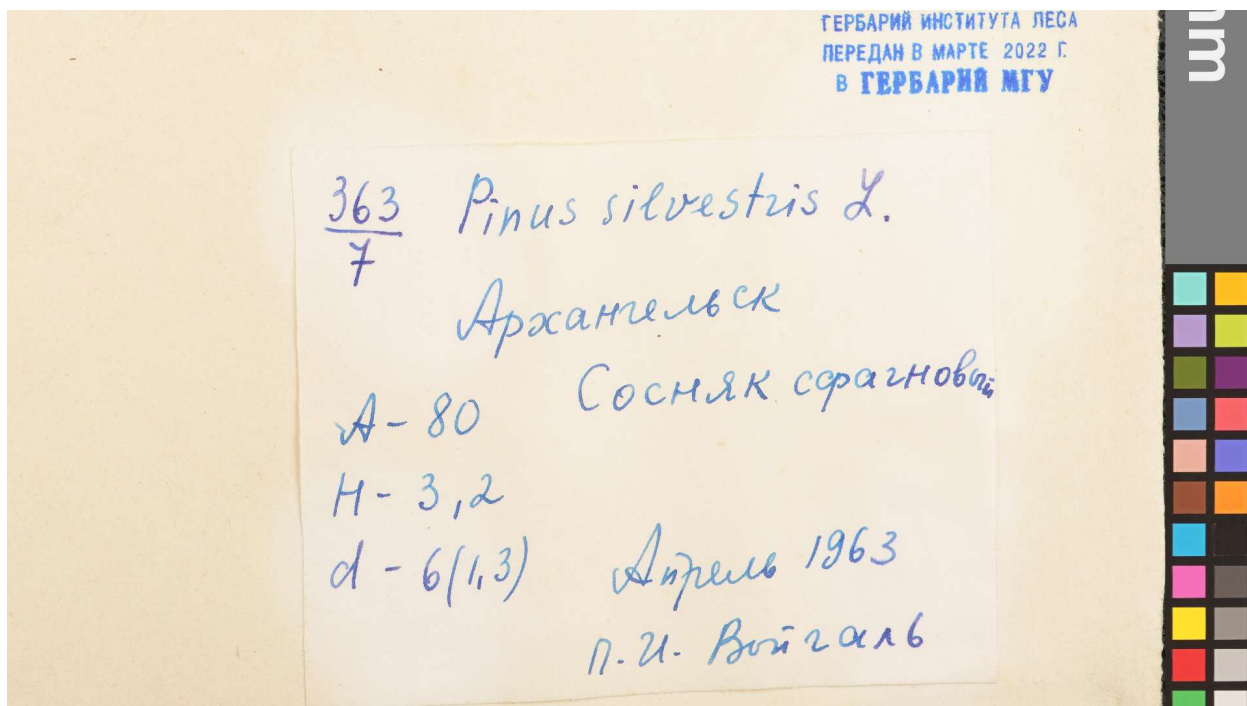 ГЕРБАРИЙ ИНСТИТУТА ЛЕСА
ПЕРЕДАН В МАРТЕ 2022 Г.
В ГЕРБАРИЙ МГУ
mm
363/7 Pinus silvestris L.
Архангельск
Сосняк сфагновый
A - 80
H - 3,2
d - 6(1,3)
Апрель 1963
П.И. Войчаль